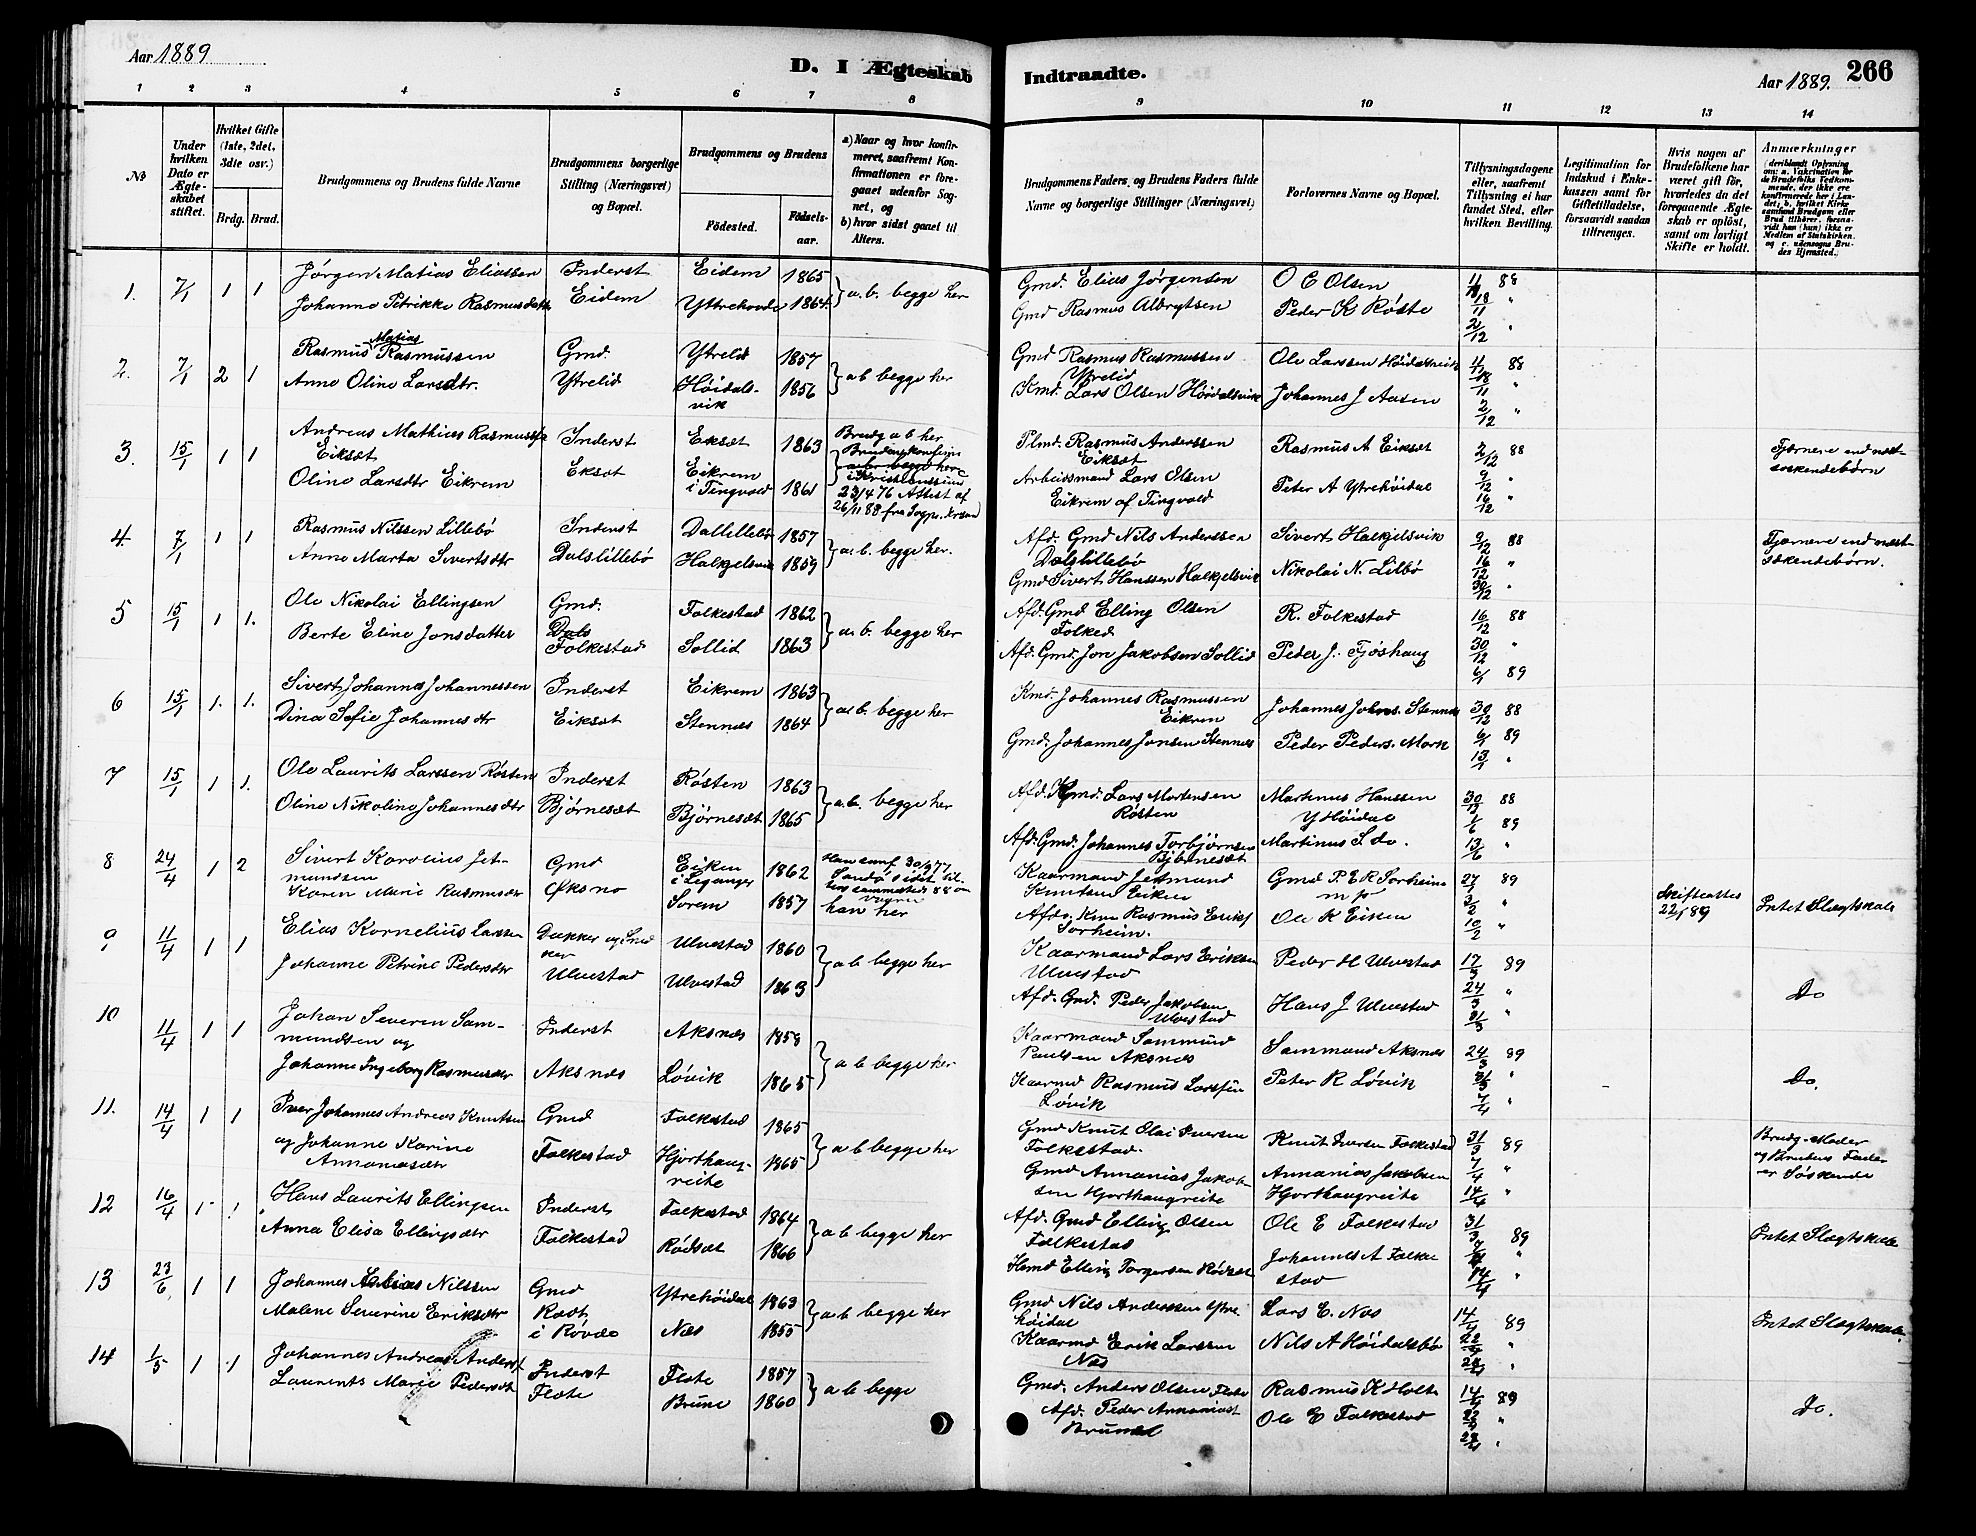 Aar 1889
D. I Ægteskab
Indtraadte.
Aar 1889.
266
1 2 3 4 5 6 7 8
9 10 11 12 13 14
№
Under hvilken Dato er Ægteskabet stiftet.
Hvilket Gifte (1ste, 2det, 3die osv.)
Brdg. Brud.
Brudgommens og Brudens fulde Navne
Brudgommens borgerlige Stilling (Næringsvei) og Bopæl.
Brudgommens og Brudens
Fødested.
Fødselsaar.
a) Naar og hvor konfirmeret, saafremt Konfirmationen er foregaaet udenfor Sognet, og
b) hvor sidst gaaet til Alters.
Brudgommens Faders, og Brudens Faders fulde Navne og borgerlige Stillinger (Næringsvei)
Forlovernes Navne og Bopæl.
Tillysningsdagene eller, saafremt Tillysning ei har fundet Sted, efter hvilken Bevilling.
Legitimation for Indskud i Enkekassen samt for Giftetilladelse, forsaavidt saadan tiltrænges.
Hvis nogen af Brudefolkene har været gift før, hvorledes da det foregaaende Ægteskab er opløst, samt om lovligt Skifte er holdt.
Anmærkninger
1. 7/1 1 1 Jørgen Matias Eliassen Inderst Eidem 1865
Johanne Petrikke Rasmusdatter Eidem Yttrehovde 1864. } a. b. begge her
Gmd. Elias Jørgensen O C Olsen 88
Gmd Rasmus Albrytsen Peder K Røste 18/11 "
2/12 "
2. 7/1 2 1 Rasmus Matias Rasmussen Gmd. Ytrelid 1857
Anne Oline Larsdtr. Ytrelid Høidalsvik 1856 } a b begge her
Gmd Rasmus Rasmussen Ytrelid Ole Larssen Høidalsvik 88
Kmd. Lars Olsen Høidalsvik Johannes J Aasen 18/11 "
2/12 "
3. 15/1 1 1 Andreas Mathias Rasmuss. Eiksæt Inderst Eksæt 1863
Oline Larsdtr Eikrem Eksæt Eikrem i Tingvold 1861
Brudg a b her
23/4 76 Attest af
26/11 88 fra
Plmd. Rasmus Anderssen Eiksæt Rasmus A Eiksæt 2/12 88
Arbeidsmand Lars Olsen Eikrem af Tingvold Peter A Ytrehøidal 9/12 "
16/12 "
Fjernere end næstsøskendebørn
4. 7/1 1 1 Rasmus Nilssen Lillebø Inderst Dallillebø 1857
Anne Marta Sivertsdtr Dalslillebø Halkjelsvik 1859 } a. b. begge her.
Afd. Gmd Nils Anderssen Dalslillebø Sivert Halkjelsvik 9/12 88
Gmd Sivert Hanssen Halkjelsvik Nikolai N. Lilbø 16/12 "
30/12 "
Fjernere end næstsøskendebørn.
5 15/1 1 1. Ole Nikolai Ellingsen Gmd. Folkestad 1862
Berte Eline Jonsdatter Dals Folkestad Sollid 1863 } a. b. begge her
Afd. Gmd Elling Olsen Folked R. Folkestad 16/12 88
Afd. Gmd. Jon Jakobsen Sollid Peder J. Fjøshaug 30/12 "
6/1 89
6 15/1 1. 1. Sivert Johannes Johannessen Inderst Eikrem 1863
Dina Sofie Johannesdtr Eiksæt Stennæs 1864 } a. b. begge her
Kmd. Johannes Rasmussen Eikrem Johannes Johns. Stennæs 30/12 88
Gmd. Johannes Jonsen Stennæs Peder Peders. Mork 6/1 89
13/1 "
7 15/1 1 1. Ole Laurits Larssen Røsten Inderst Røsten 1863
Oline Nikoline Johannesdtr Bjørnesæt Bjørnesæt 1865 } a. b. begge her
Afd. Gmd. Lars Mortensen Røsten Martinus Hanssen Y Høidal 30/12 88
Afd. Gmd. Johannes Torbjørnsen Bjørnesæt Martinus S do. 89
"
8 24/4 1 2 Sivert Karolius Jetmundsen Gmd Eiken i 1862
Karen Marie Rasmusdtr Øksno Sorem 1857
han her
Kaarmand Jetmund Knutsen Eiken Gmd P. E R Sorheim 89
Afd. Rasmus Eriks Sorheim. Ole K Eiken 3/2 "
10/2 "
Skifteattest 22/1 89
Intet Slægtskab
9 11/4 1 1 Elias Kornelius Larssen Ulvestad 1860
Johanne Petrine Pedersdtr Ulvestad Ulvestad 1863 } a b begge her
Kaarmand Lars Eriksen Ulvestad Peder H Ulvestad 17/3 89
Afd. Gmd. Peder Jakobsen Ulvestad Hans J Ulvestad 24/3 "
31/3 "
Do
10 11/4 1 1 Johan Severin Sammundsen og Inderst Aksnæs 1859
Johanne Ingeborg Rasmusdtr Aksnæs Løvik 1865 } a b begge her
Kaarmand Sammund Paulsen Aksnes Sammund Aksnæs 24/3 89
Kaarmd Rasmus Larssen Løvik Peter R Løvik 31/3 "
7/4 "
Do.
11. 14/4 1 1 Iver Johannes Andreas Knutsen Gmd Folkestad 1865
og Johanne Karine Annaniasdtr Folkestad Hjorthaugreite 1865 } a b begge her
Gmd Knut Olai Iversen Folkestad. Knut Iversen Folkestad 31/3 89
Gmd Annanias Jakobsen Hjorthaugreite Annanias Jakobsen Hjorthaugreite 7/4 "
14/4 "
Brudg. Moder og Brudens Fader er Søskende
12 16/4 1 1 Hans Laurits Ellingsen Inderst Folkestad 1864
Anna Elisa Ellingsdtr Folkestad Rødsæt 1866 } a b begge her
Afd. Gmd Elling Olsen Folkestad Ole E Folkestad 31/3 89
Hsmd Elling Torgersen Rødsæt Johannes A Folkestad 7/4 "
14/4 "
Intet Slægtskab
13 23/6 1 1 Johannes Nilssen Gmd Ytrehøidal 1863
Malene Severine Eriksdtr i Røvde Næs 1855 } a b begge her
Gmd Nils Anderssen Ytrehøidal Lars E. Næs 14/4 89
Kaarmd Erik Larssen Næs Nils A Høidalsbø 22/4 "
28/4 "
Intet Slægtskab.
14 1/5 1 1 Johannes Andreas Anders. Inderst Flote 1857
Laurents Marie Pedersdt Flote Brune 1860 } a b begge
Gmd. Anders Olsen Flote Rasmus K Holte 14/4 89
Afd. Peder Annanias. Brunes Ole E Folkestad 22/4 "
28/4 "
Do.